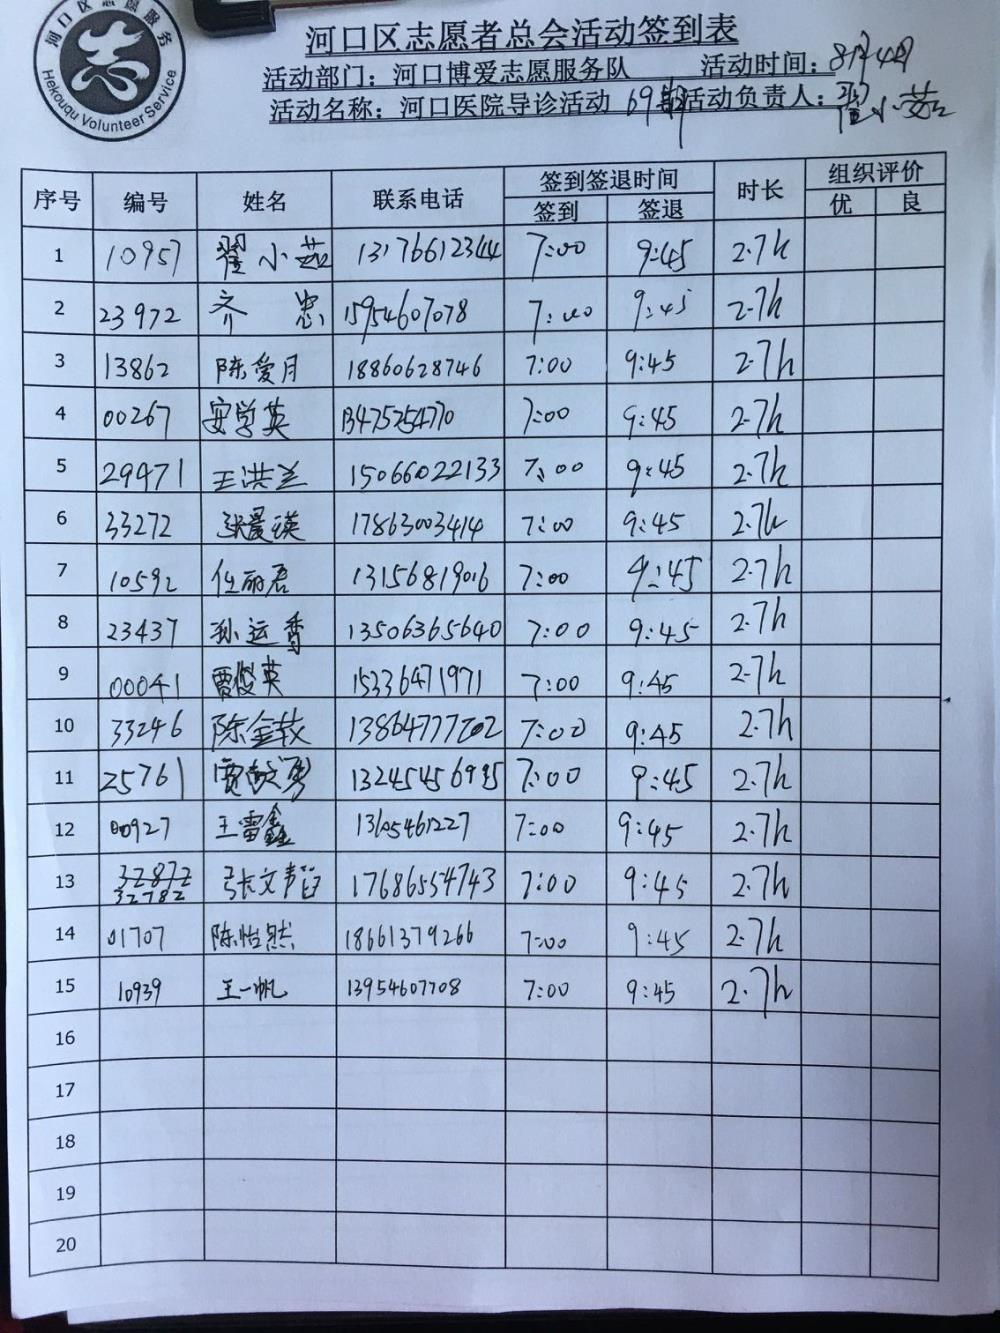 河口区志愿服务
Hekouqu Volunteer Service
河口区志愿者总会活动签到表
活动部门：河口博爱志愿服务队 活动时间：8月4日
活动名称：河口医院导诊活动 69期 活动负责人：翟小茹
序号 编号 姓名 联系电话 签到签退时间 时长 组织评价
签到 签退 优 良
1 10957 翟小茹 13176612344 7:00 9:45 2.7h
2 23972 齐忠 15954607078 7:00 9:45 2.7h
3 13862 陈爱月 18860628746 7:00 9:45 2.7h
4 00267 安学英 13475254770 7:00 9:45 2.7h
5 29471 王洪兰 15066022133 7:00 9:45 2.7h
6 33272 张爱瑛 17863003414 7:00 9:45 2.7h
7 10592 任丽君 13156819016 7:00 9:45 2.7h
8 23437 孙运香 13506365640 7:00 9:45 2.7h
9 00041 贾俊英 15336471971 7:00 9:45 2.7h
10 33246 陈金枝 13864777202 7:00 9:45 2.7h
11 25761 7:00 9:45 2.7h
12 00927 王雷鑫 13605461227 7:00 9:45 2.7h
13 32872 张文韬 17686554743 7:00 9:45 2.7h
32782
14 01707 陈怡然 18661379266 7:00 9:45 2.7h
15 10939 王一帆 13954607708 7:00 9:45 2.7h
16
17
18
19
20